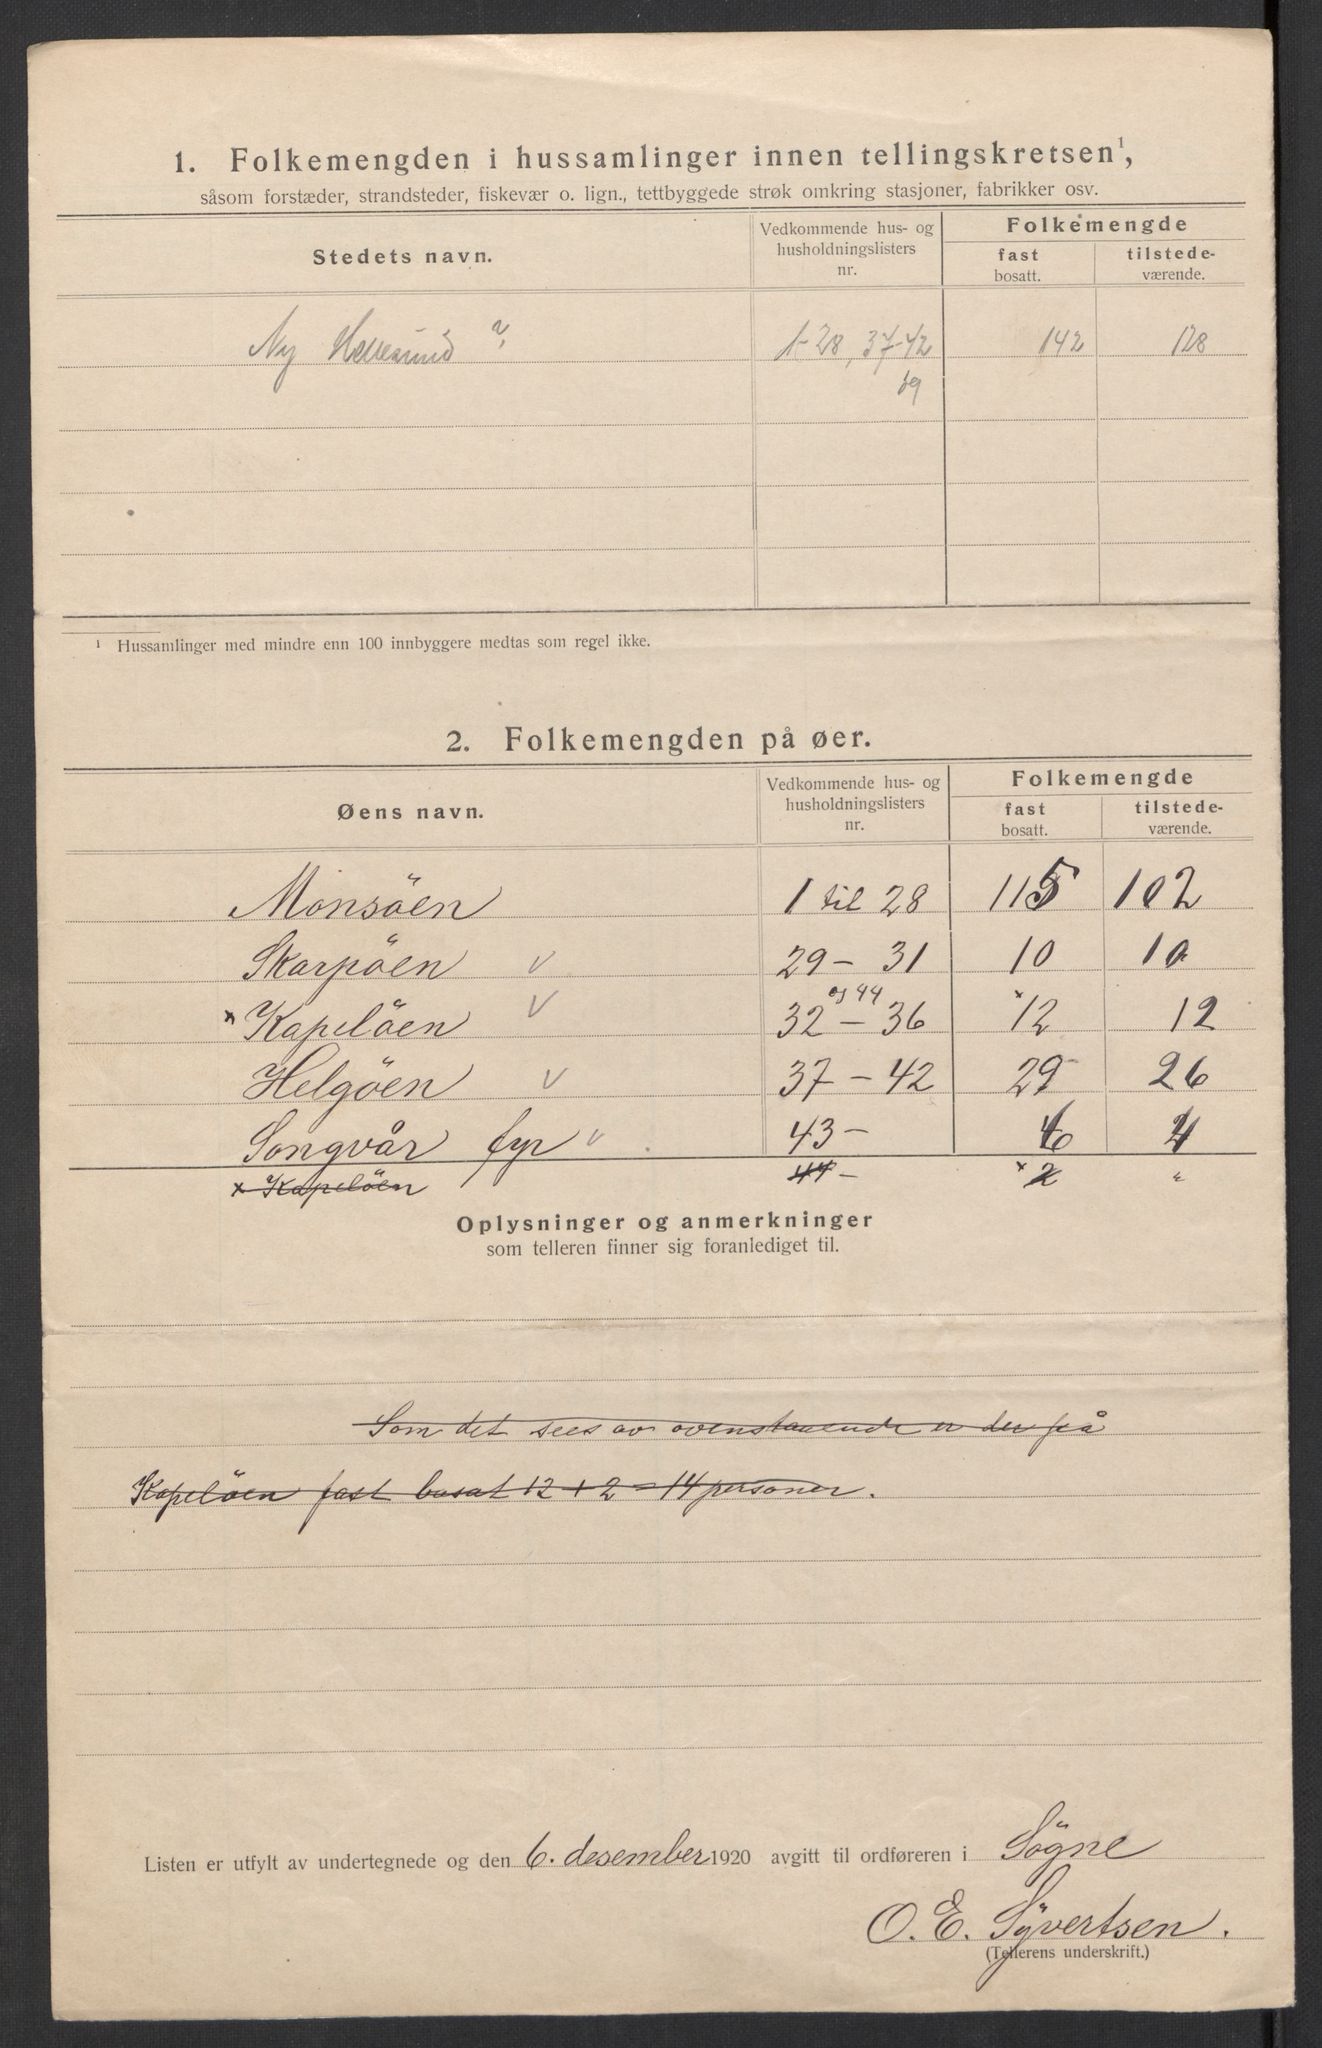 1. Folkemengden i hussamlinger innen tellingskretsen¹,
såsom forstæder, strandsteder, fiskevær o. lign., tettbyggede strøk omkring stasjoner, fabrikker osv.
Stedets navn.
Vedkommende hus- og husholdningslisters nr.
Folkemengde
fast bosatt.
tilstede-værende.
Ny Hellesund ? 1-28, 37-42 142 128
¹ Hussamlinger med mindre enn 100 innbyggere medtas som regel ikke.
2. Folkemengden på øer.
Øens navn.
Vedkommende hus- og husholdningslisters nr.
Folkemengde
fast bosatt.
tilstede-værende.
Monsöen 1 til 28 115 102
Skarpöen v 29 – 31 10 10
og 44
x Kapelöen v 32 – 36 x 12 12
Helgöen v 37 – 42 29 26
Songvår fyr v 43 – 4
x Kapelöen 44 – x 2 "
Oplysninger og anmerkninger
som telleren finner sig foranlediget til.
Som det sees av ovenstaaende er der på
Kapelöen fast bosat 12 + 2 = 14 personer.
Listen er utfylt av undertegnede og den 6. desember 1920 avgitt til ordføreren i Sögne
O. E. Syvertsen.
(Tellerens underskrift.)